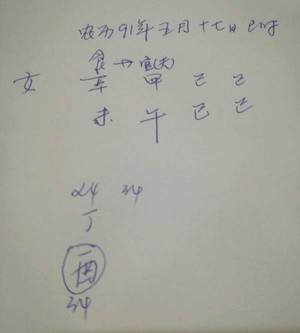 农历91年五月十七日巳时
食→官(夫)
女 辛 甲 己 己
未 午 巳 巳
24 34
丁
酉
34